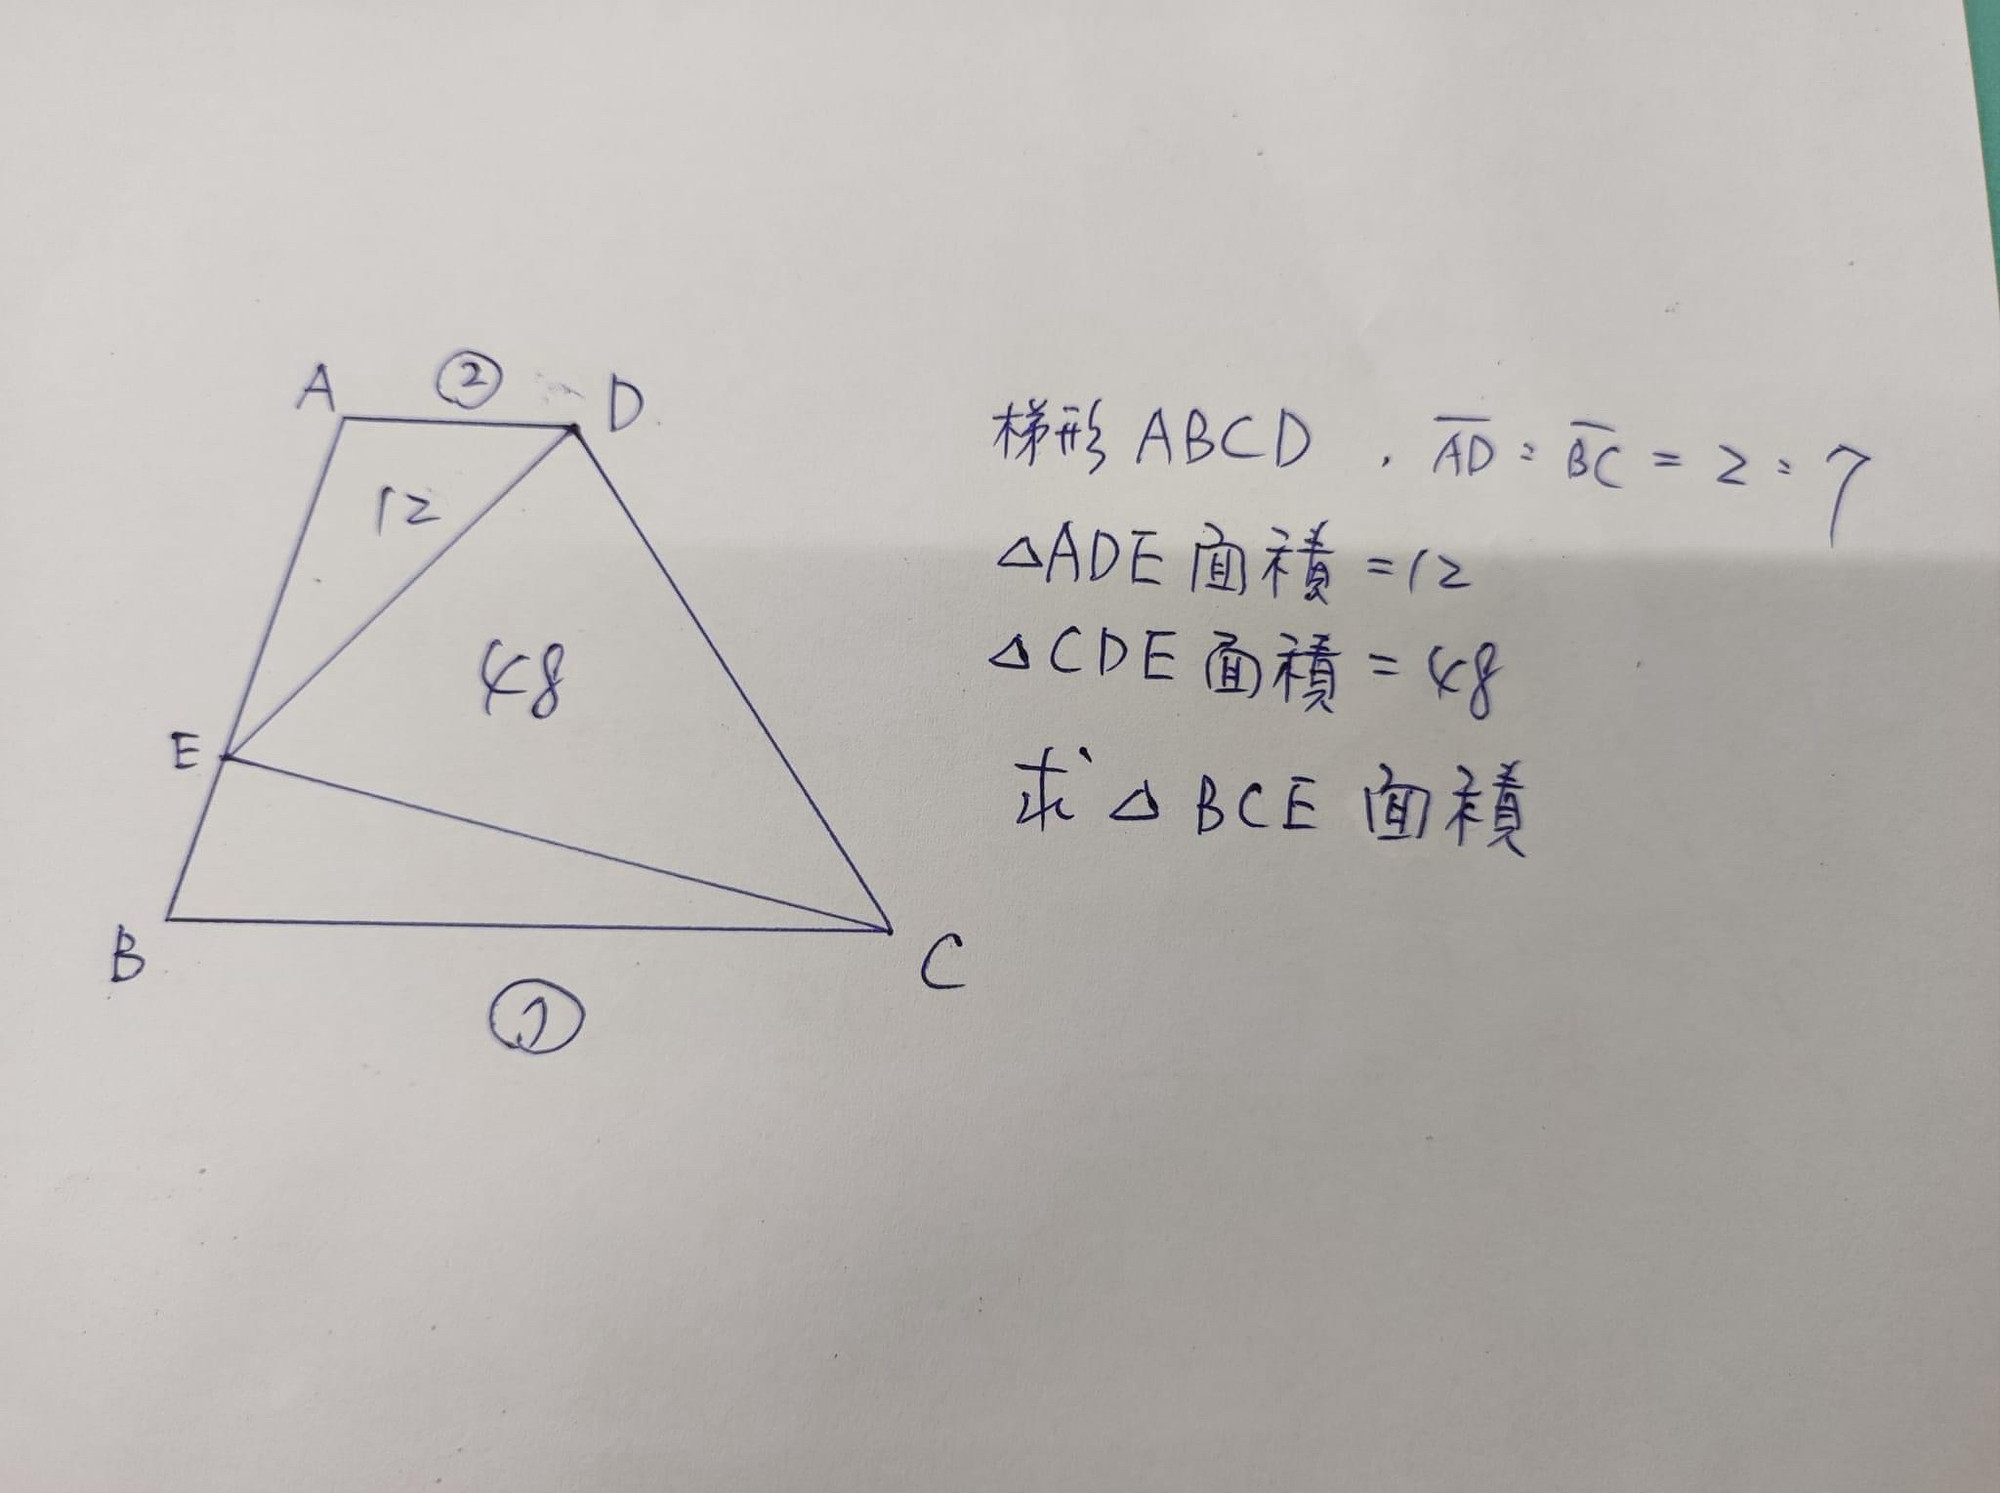 A ② D
12
48
E
B C
⑦
梯形 ABCD , A̅D̅ : B̅C̅ = 2 : 7
△ADE 面積 = 12
△CDE 面積 = 48
求 △ BCE 面積